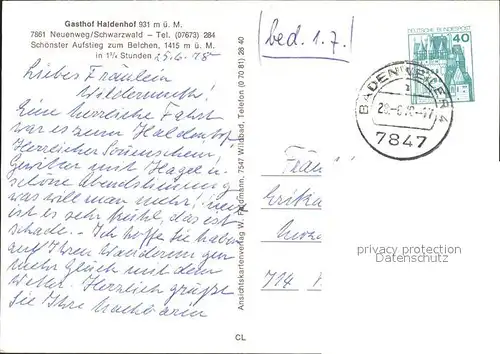 Gasthof Haldenhof 931 m ü. M.
7861 Neuenweg/Schwarzwald – Tel. (07673) 284
Schönster Aufstieg zum Belchen, 1415 m ü. M.
in 1¾ Stunden
25.6.78
Liebes Fräulein
Wildermuth!
Eine herrliche Fahrt
war es zum Haldenhof
Herrlicher Sonnenschein,
Gewitter mit Hagel u.
schöne Abendstimmung
was will man mehr!
ist es sehr kühl, das ist
schade. – Ich hoffe Sie haben
auf Ihren Wanderungen
mehr Glück mit dem
Wetter. Herzlich grüßt
Sie Ihre
Ansichtskartenverlag W. Feldmann, 7547 Wildbad, Telefon (0 70 81) 28 40
CL
(bed. 1.7.)
DEUTSCHE BUNDESPOST
40
BADENWEILER 1
7847
Fräu
Erika
714
privacy protection
Datenschutz